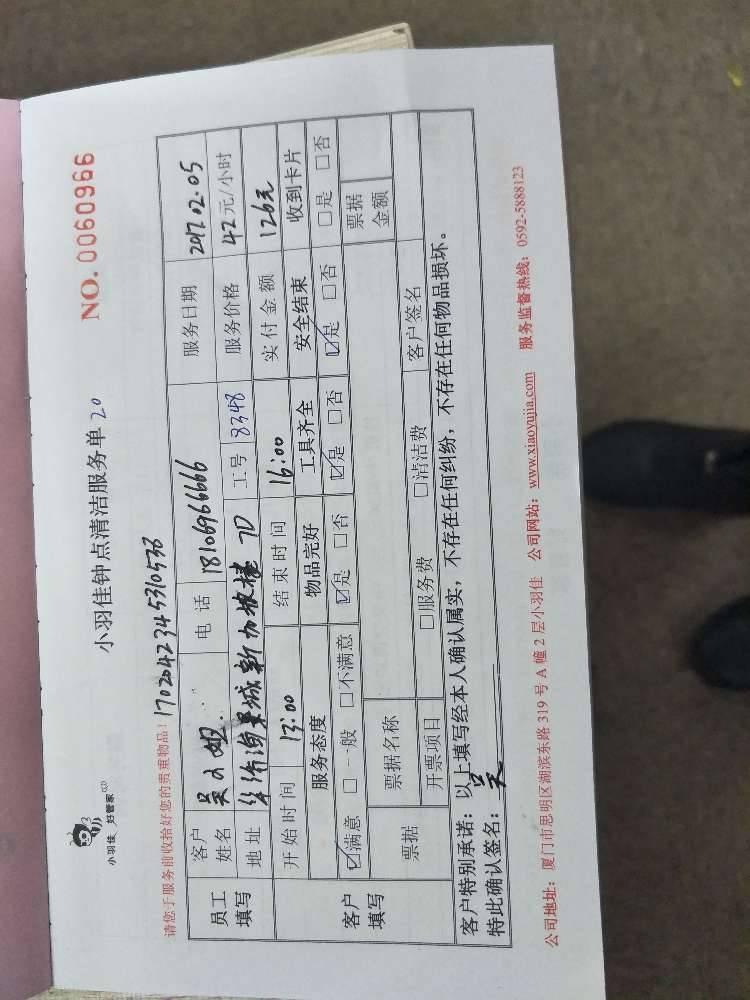 小羽佳 好管家
NO. 0060966
小羽佳钟点清洁服务单 20
请您于服务前收拾好您的贵重物品! 1702042345310538
员工填写 客户姓名 吴小姐 电话 18106966666 服务日期 2017.02.05
地址 新加坡 7D 工号 8348 服务价格 42元/小时
开始时间 13:00 结束时间 16:00 实付金额 126元
客户填写 服务态度 物品完好 工具齐全 安全结束 收到卡片
☑满意 □一般 □不满意 ☑是 □否 ☑是 □否 ☑是 □否 □是 □否
票据 票据名称 票据金额
开票项目 □服务费 □清洁费 客户签名
客户特别承诺:以上填写经本人确认属实,不存在任何纠纷,不存在任何物品损坏。
特此确认签名: 吴
公司地址:厦门市思明区湖滨东路 319 号 A 幢 2 层小羽佳 公司网站:www.xiaoyujia.com 服务监督热线:0592-5888123